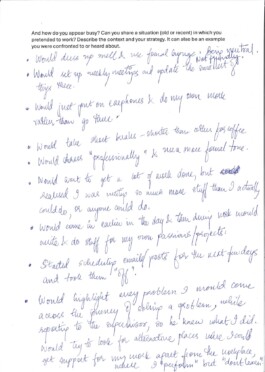 And how do you appear busy? Can you share a situation (old or recent) in which you
pretended to work? Describe the context and your strategy. It can also be an example
you were confronted to or heard about.
• Would dress up well & use formal language. being neutral.
Not friendly.
• Would set up weekly meetings and update the smallest of
things there.
• Would just put on earphones & do my own work
rather than go there.
• Would take short breaks – shorter than other for coffee.
• Would "professionally" & use a more formal tone.
• Would want to get a lot of work done, but
realised I was noting so much more stuff than I actually
could do, or anyone could do.
• Would come in earlier in the day & then during work would
write & do stuff for my own passions/projects.
• Started scheduling emails/ posts for the next few days
and took them "off".
• Would highlight every problem I would come
across the journey of solving a problem, while
reporting to the supervisor, so he knew what I did.
• Would try to look for alternative places where I could
get support for my work apart from the workplace,
where I "perform" but "don't learn"